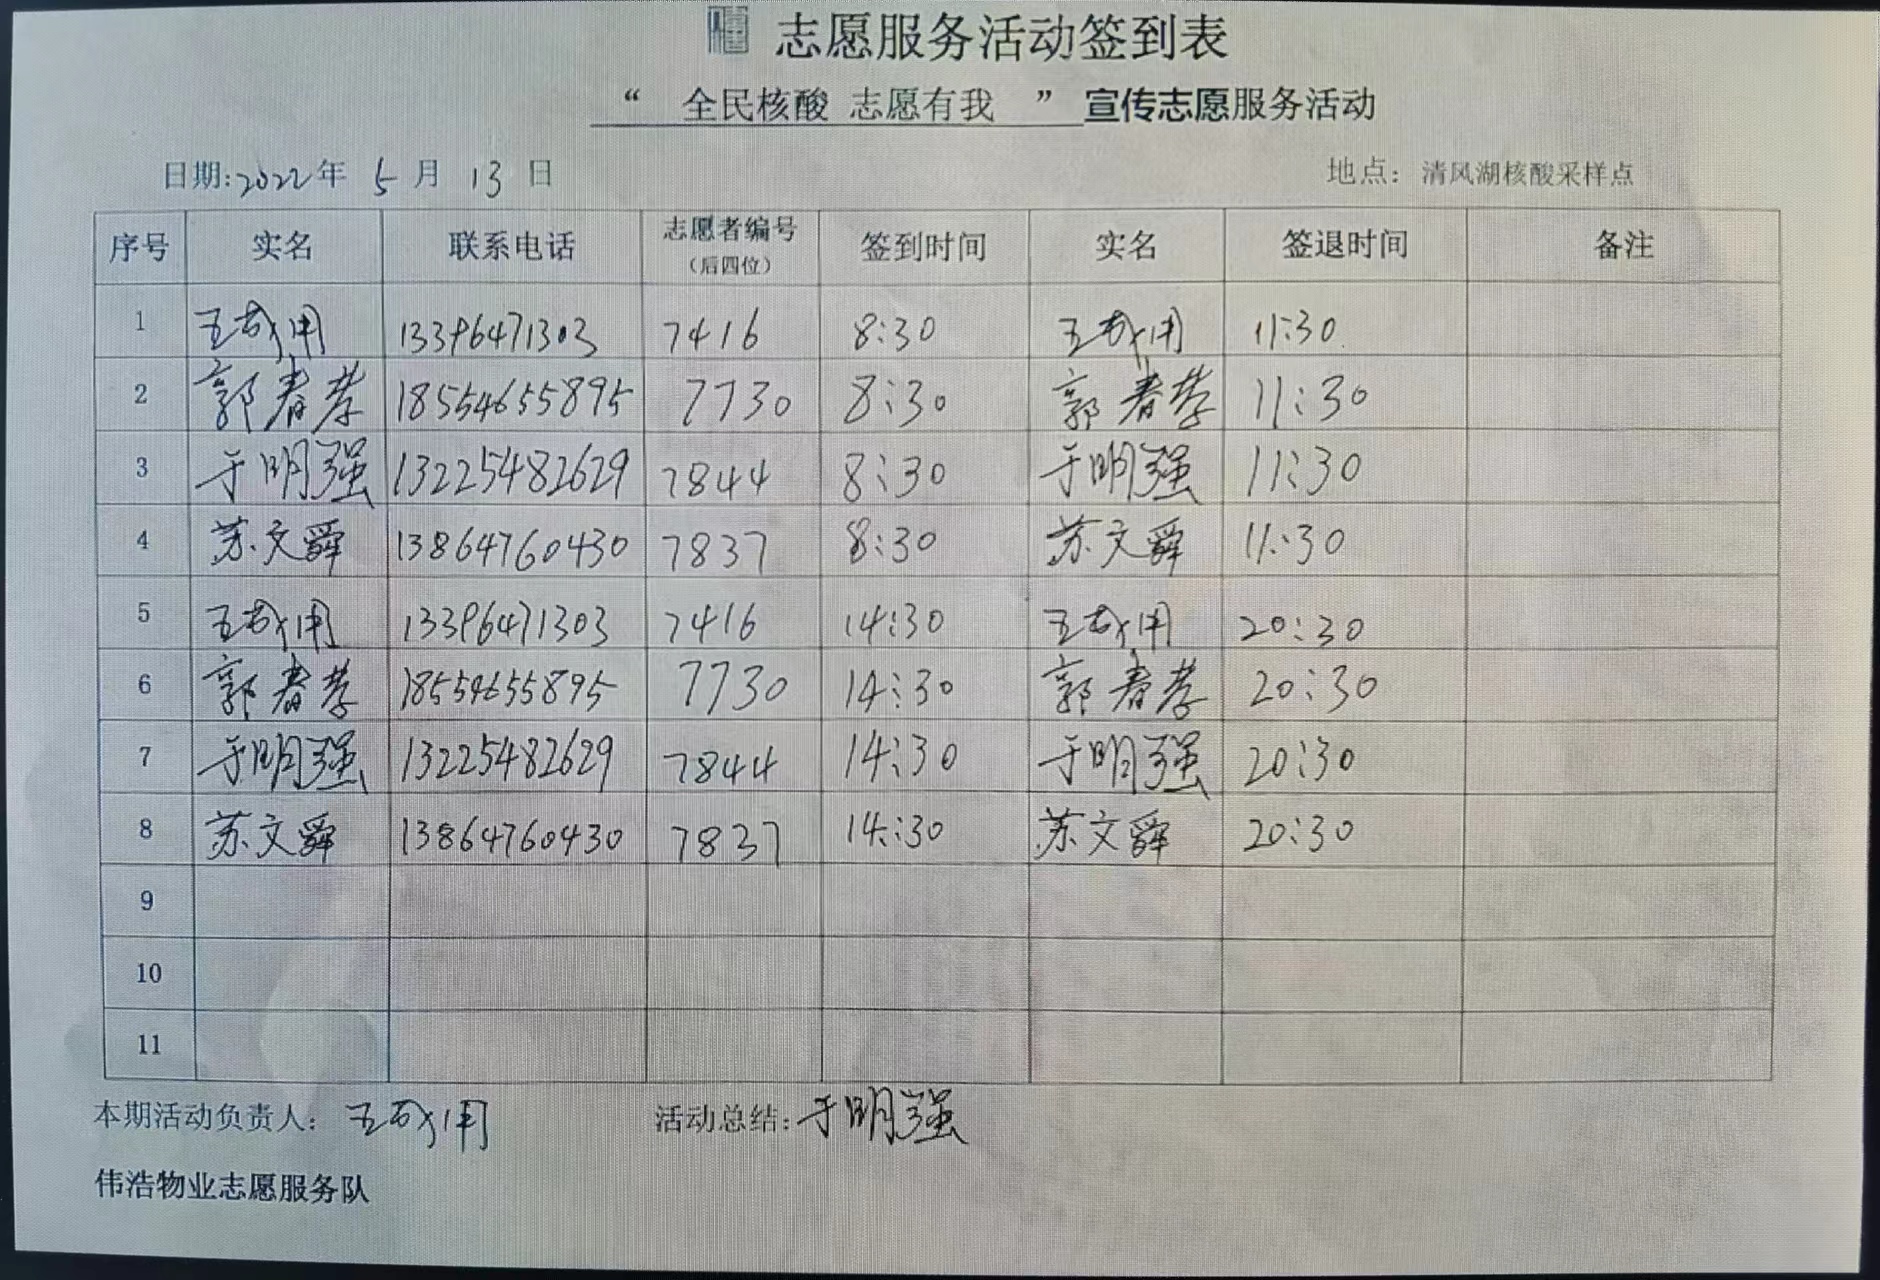 志愿服务活动签到表
“ 全民核酸 志愿有我 ” 宣传志愿服务活动
日期:2022年 5 月 13 日 地点：清风湖核酸采样点
序号 实名 联系电话 志愿者编号（后四位） 签到时间 实名 签退时间 备注
1 13396471303 7416 8:30 11:30
2 郭春 18554655895 7730 8:30 郭春 11:30
3 于明强 13225482629 7844 8:30 于明强 11:30
4 苏文舜 13864760430 7837 8:30 苏文舜 11:30
5 13396471303 7416 14:30 20:30
6 郭春 18554655895 7730 14:30 郭春 20:30
7 于明强 13225482629 7844 14:30 于明强 20:30
8 苏文舜 13864760430 7837 14:30 苏文舜 20:30
9
10
11
本期活动负责人： 活动总结:于明强
伟浩物业志愿服务队